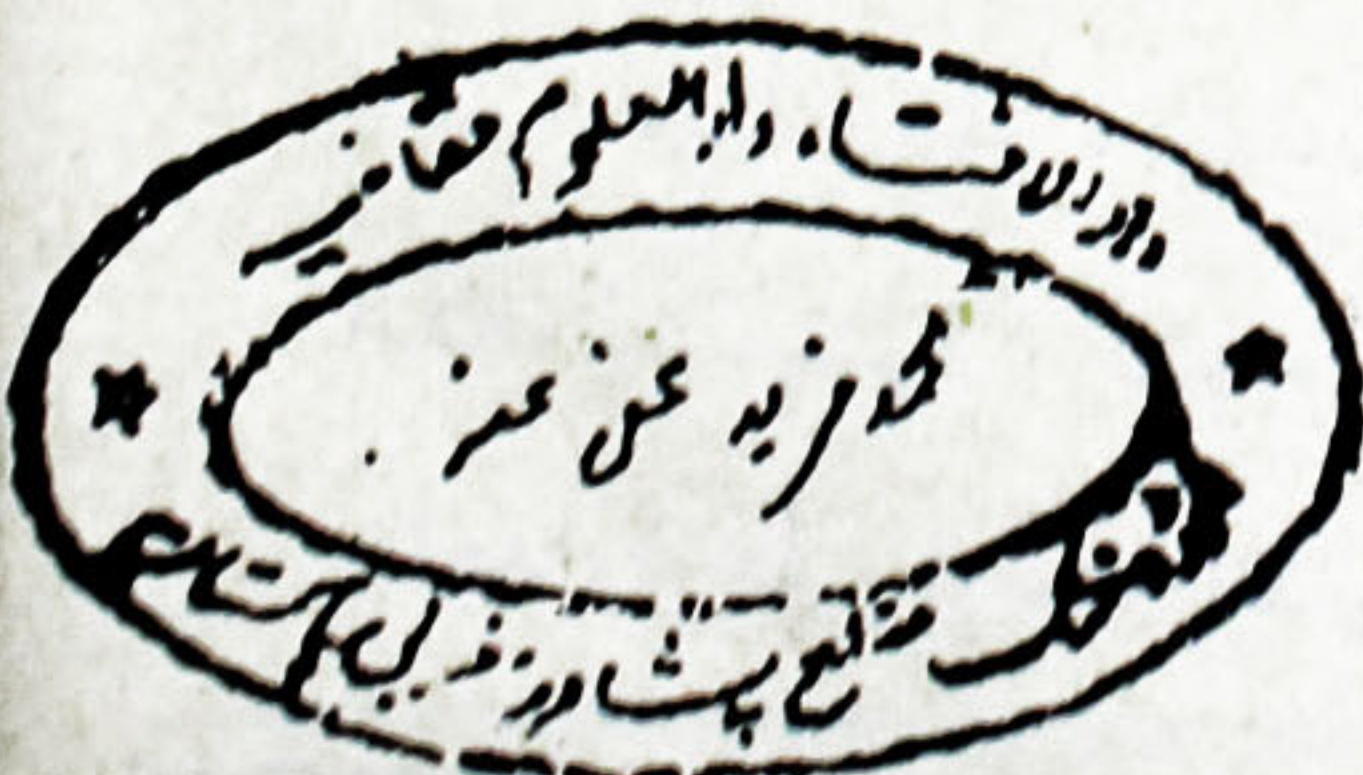 دارالافتاء دارالعلوم حقانیہ
محمد فرید عفی عنہ
خٹک ضلع پشاور مغربی پاکستان